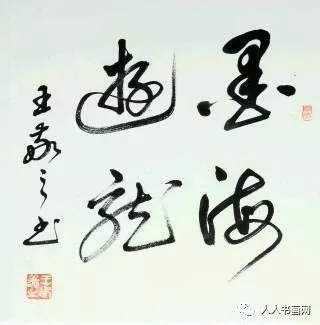 墨海
遊龙
王敬之书
人人书画网